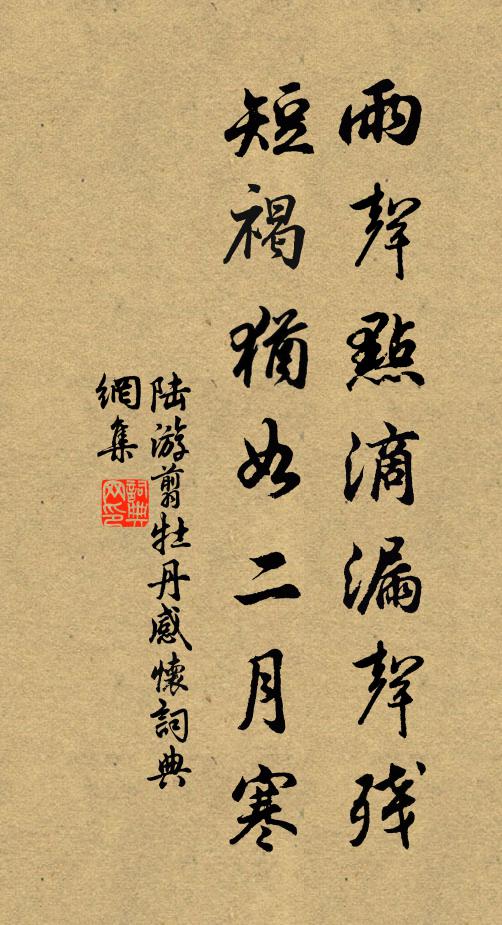 雨聲點滴漏聲殘
短褐猶如二月寒
陆游剪牡丹感懷詞典
網集
詞典
网印